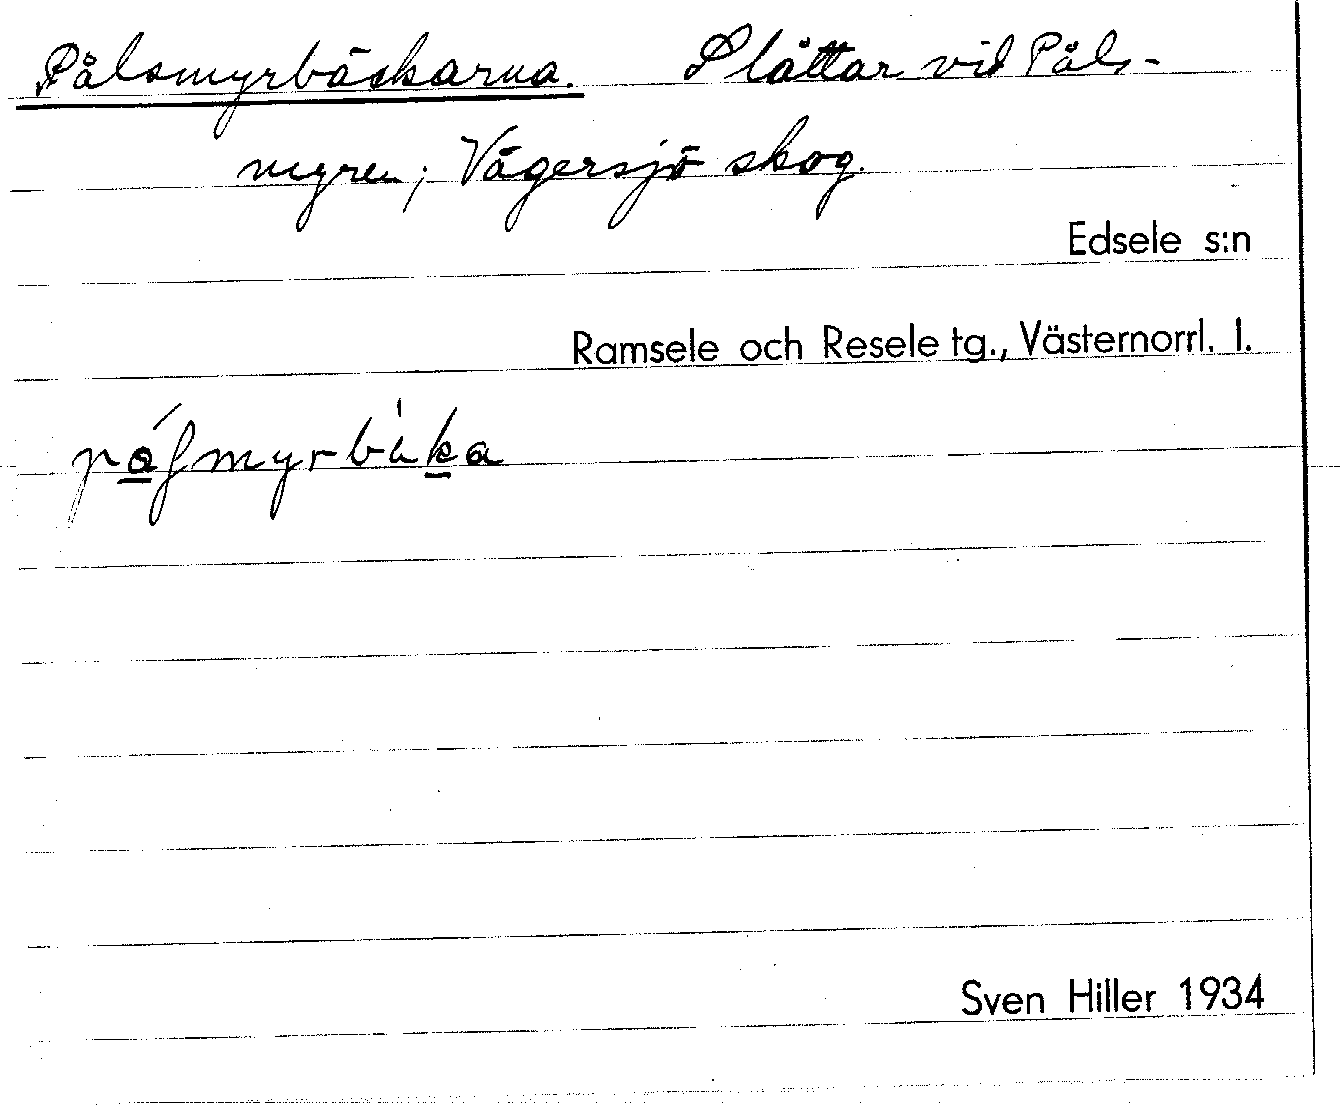 Pålsmyrbäckarna. Slåttar vid Påls-
myren; Vägersjö skog.
Edsele s:n
Ramsele och Resele tg., Västernorrl. l.
Sven Hiller 1934